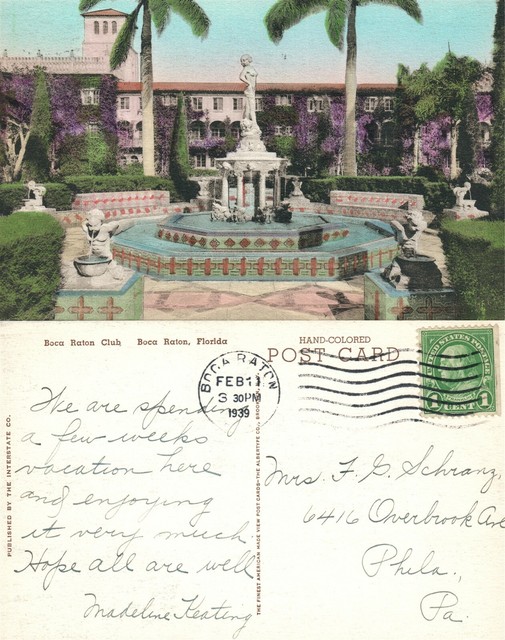 Boca Raton Club    Boca Raton, Florida
HAND-COLORED
POST CARD
BOCA RATON
FEB 11
3 30PM
1939
UNITED STATES POSTAGE
1 CENT 1
PUBLISHED BY THE INTERSTATE CO.
THE FINEST AMERICAN MADE VIEW POST CARDS—THE ALBERTYPE CO., BROOKLYN
We are spending
a few weeks
vacation here
and enjoying
it very much.
Hope all are well
Madeline Keating
Mrs. F. G. Schranz,
6416 Overbrook Ave
Phila.,
Pa.